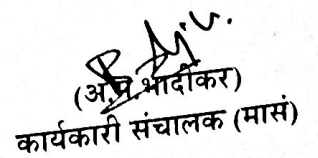 (अ.प्र.भादीकर)
कार्यकारी संचालक (मासं)